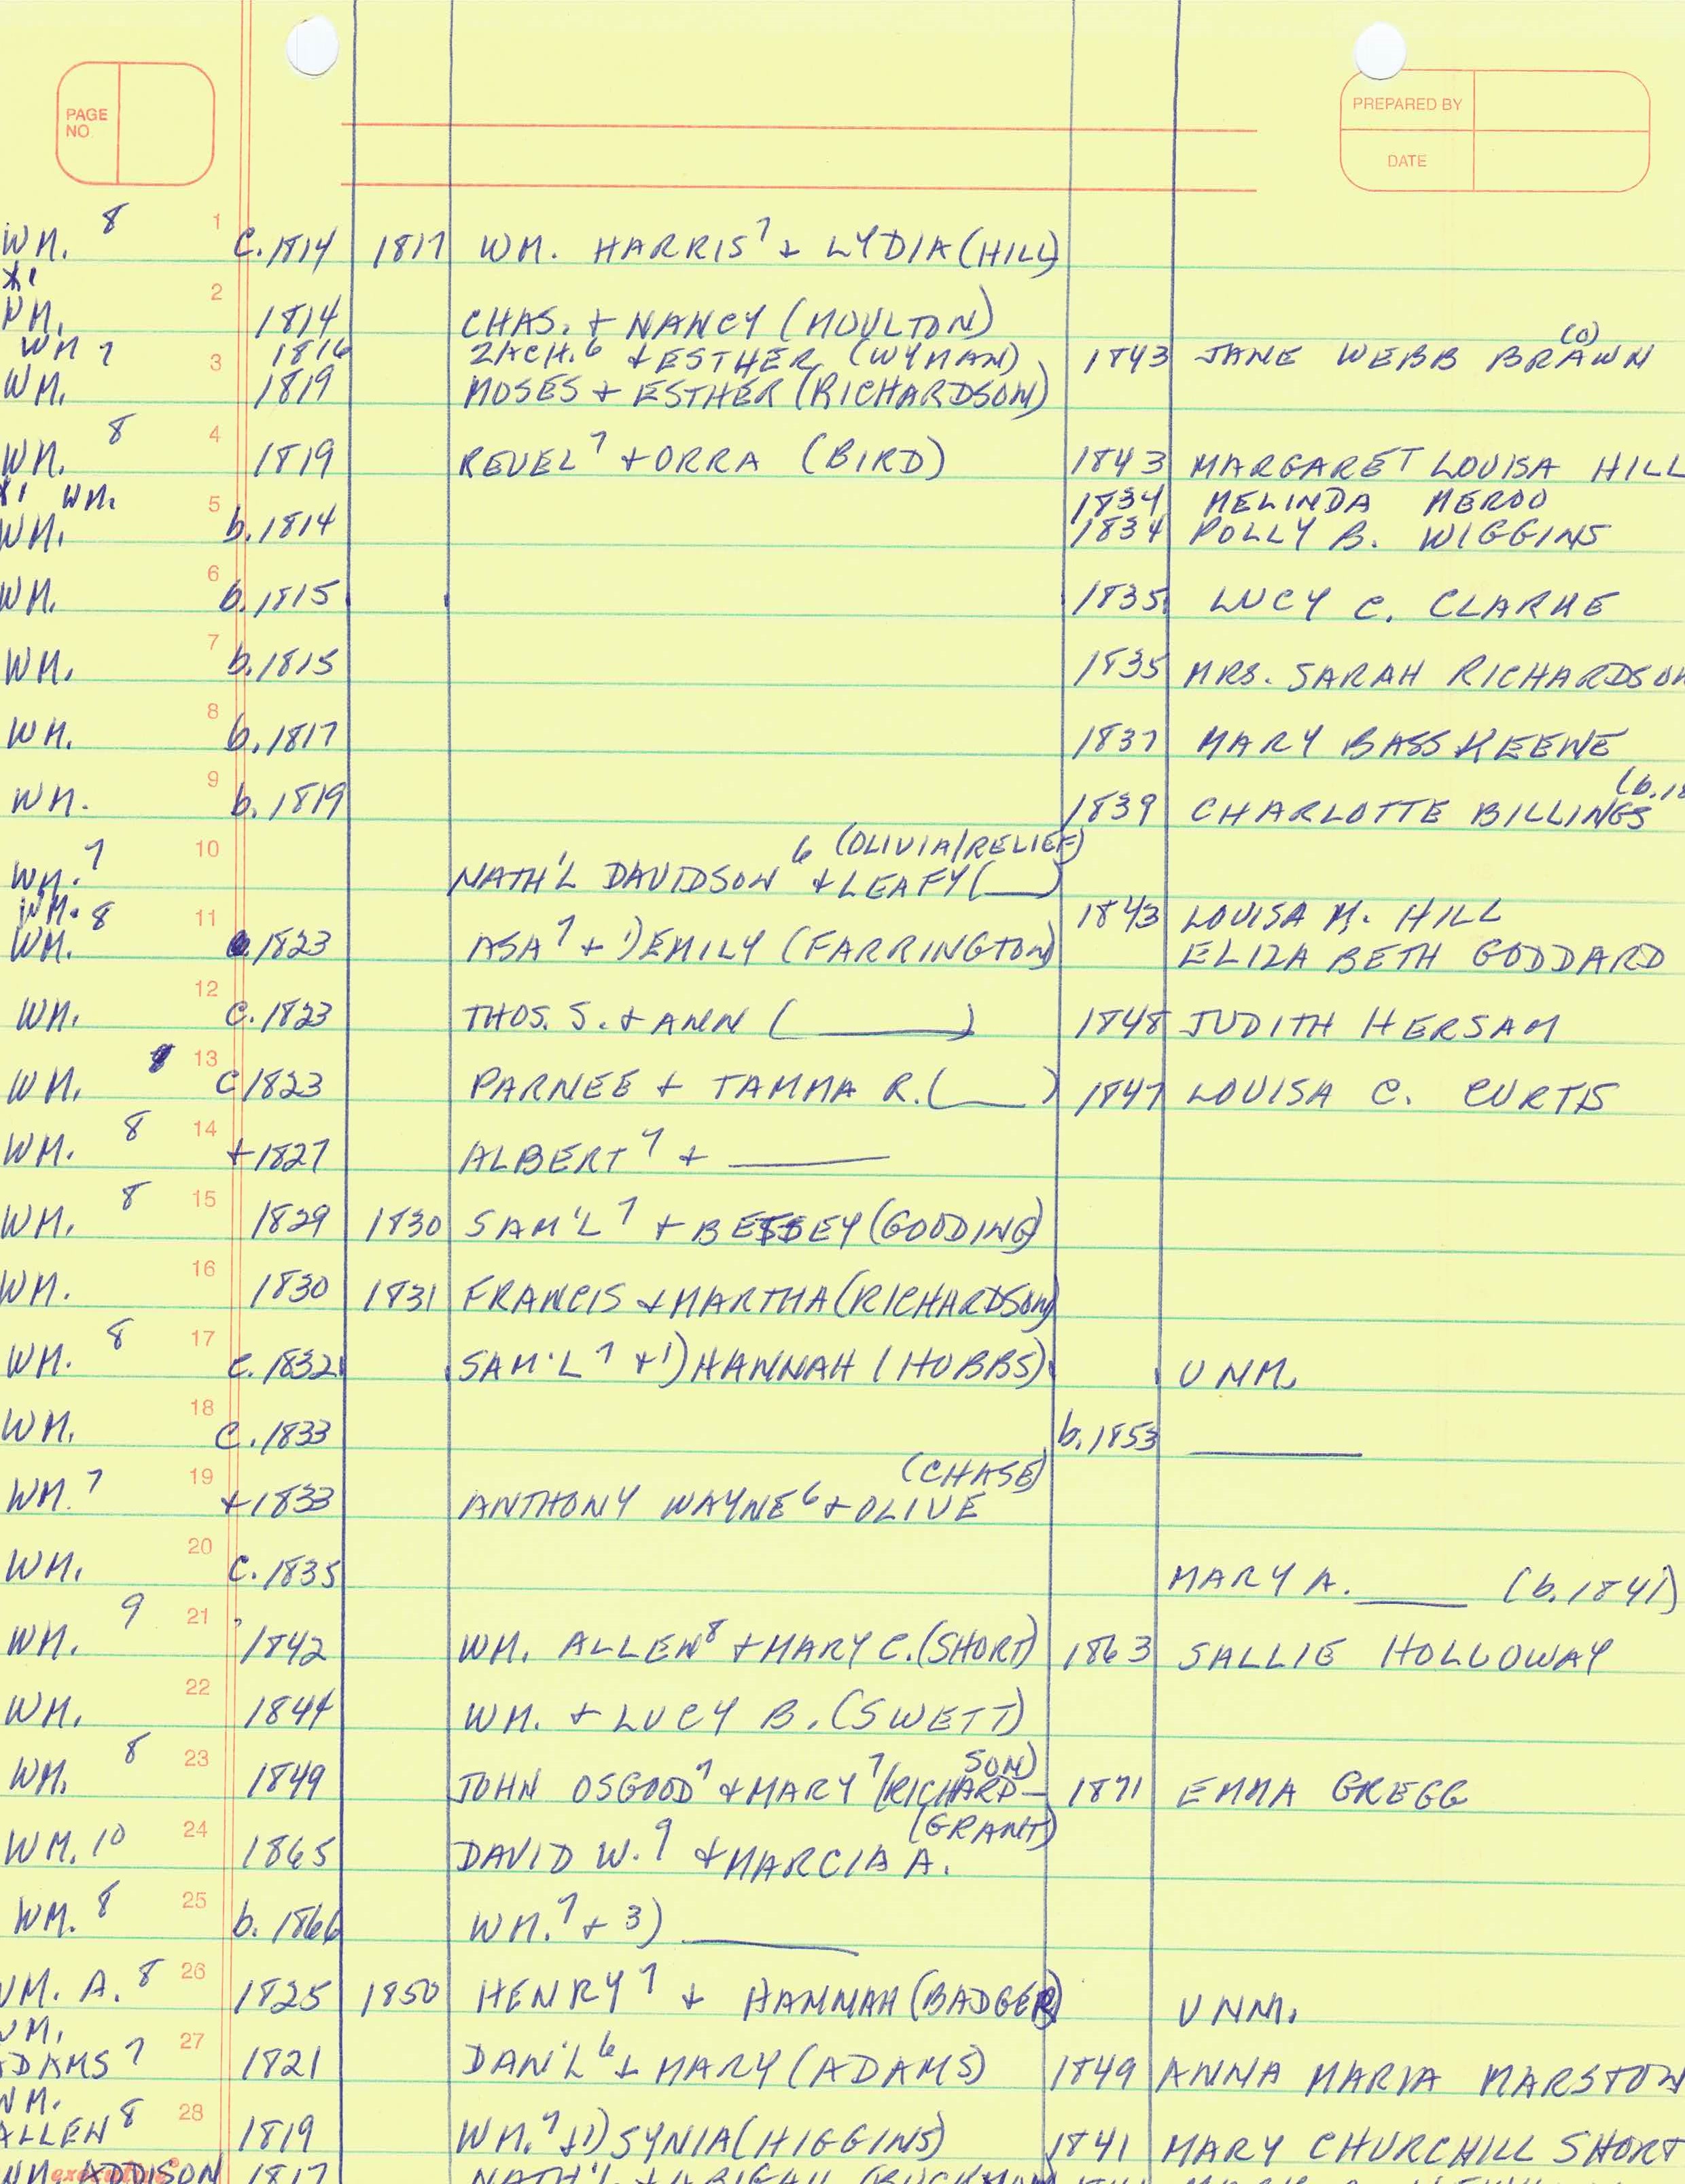 PAGE NO
PREPARED BY
DATE
WM. 8 1 C. 1814 1817 WM. HARRIS 7 + LYDIA (HILL)
2
WM. 1814 CHAS. + NANCY (MOULTON)
(O)
WM 7 3 1816 ZACH. 6 + ESTHER (WYMAN) 1843 JANE WEBB BRAWN
WM. 1819 MOSES + ESTHER (RICHARDSON)
WM. 8 4 1819 REUEL 7 + ORRA (BIRD) 1843 MARGARET LOUISA HILL
WM. 1834 MELINDA MEROO
WM. 5 b. 1814 1834 POLLY B. WIGGINS
WM. 6 b. 1815 1835 LUCY C. CLARKE
WM. 7 b. 1815 1835 MRS. SARAH RICHARDSON
WM. 8 b. 1817 1837 MARY BASS KEENE
(b. 18
WM. 9 b. 1819 1839 CHARLOTTE BILLINGS
(OLIVIA/RELIEF)
WM. 7 10 NATH'L DAVIDSON 6 + LEAFY (___)
WM. 8 1843 LOUISA M. HILL
WM. 11 1823 ASA 7 + 1) EMILY (FARRINGTON) ELIZABETH GODDARD
WM. 12 C. 1823 THOS. S. + ANN (______) 1848 JUDITH HERSAM
WM. 13 C 1823 PARNEE + TAMMA R. (___) 1847 LOUISA C. CURTIS
WM. 8 14 +1827 ALBERT 7 + ______
WM. 8 15 1829 1830 SAM'L 7 + BETSEY (GOODING)
WM. 16 1830 1831 FRANCIS + MARTHA (RICHARDSON)
WM. 8 17 C. 1832 SAM'L 7 + 1) HANNAH (HOBBS) UNM.
WM. 18 C. 1833 b. 1853 ______
(CHASE)
WM. 7 19 +1833 ANTHONY WAYNE 6 + OLIVE
WM. 20 C. 1835 MARY A. ____ (b. 1841)
WM. 9 21 1842 WM. ALLEN 8 + MARY C. (SHORT) 1863 SALLIE HOLLOWAY
WM. 22 1844 WM. + LUCY B. (SWETT)
SON)
WM. 8 23 1849 JOHN OSGOOD 7 + MARY 7 (RICHARD- 1871 EMMA GREGG
(GRANT)
WM. 10 24 1865 DAVID W. 9 + MARCIA A.
WM. 8 25 b. 1866 WM. 7 + 3) ______
WM. A. 8 26 1825 1850 HENRY 7 + HANNAH (BADGER) UNM.
WM.
ADAMS 7 27 1821 DAN'L 6 + MARY (ADAMS) 1849 ANNA MARIA MARSTON
WM.
ALLEN 8 28 1819 WM. 7 + 1) SYNIA (HIGGINS) 1841 MARY CHURCHILL SHORT
WM. ADDISON 1817